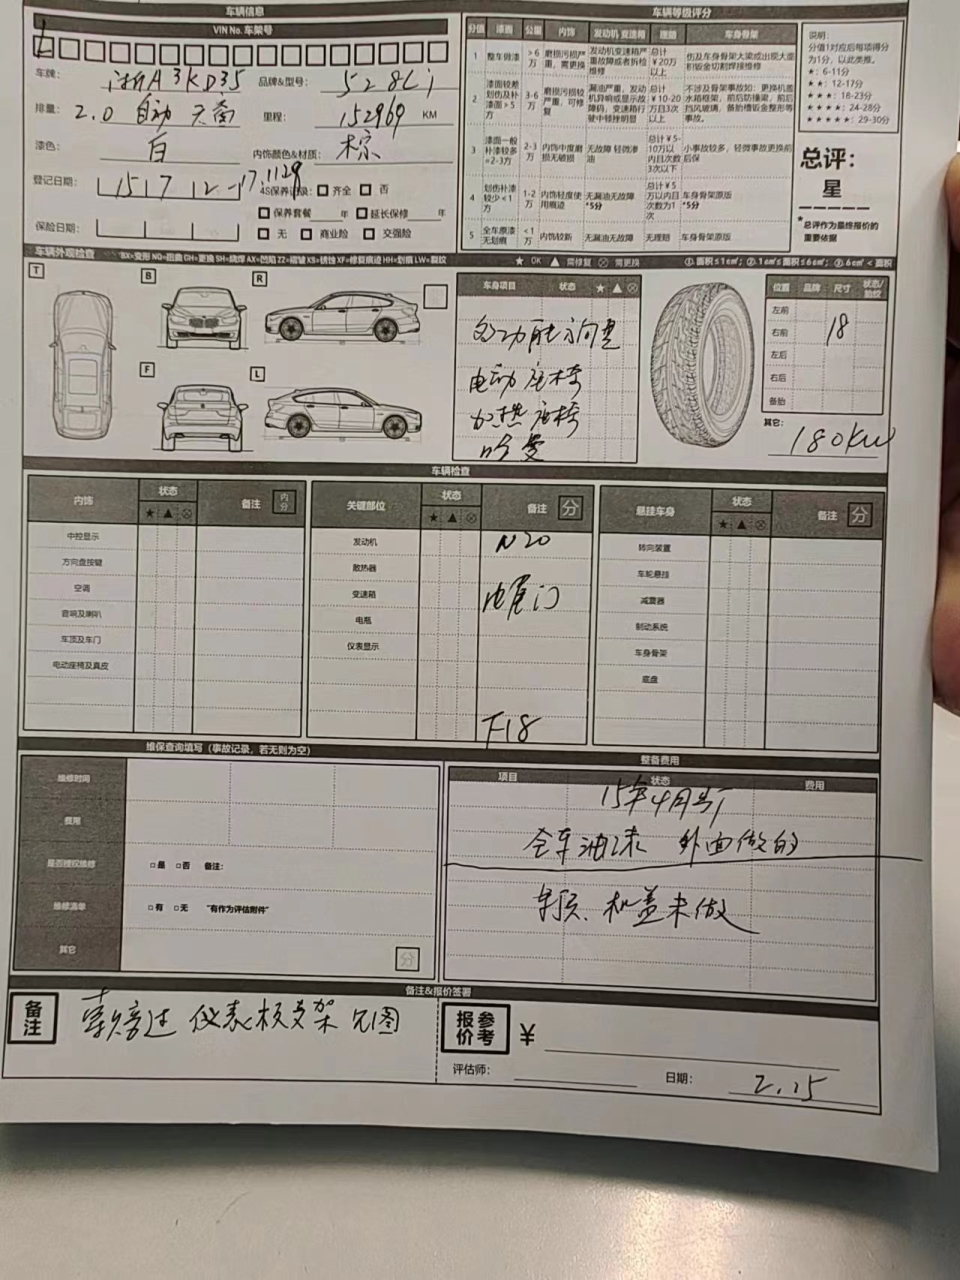 车辆信息
VIN No. 车架号
车牌: 浙A3KD35 品牌&型号: 528Li
排量: 2.0 自动 天窗 里程: 152969 KM
漆色: 白 内饰颜色&材质: 棕
登记日期: 4S保养记录: □ 齐全 □ 否
□ 保养套餐 年 □ 延长保修 年
保险日期: □ 无 □ 商业险 □ 交强险
车辆等级评分
分值 漆面 公里 内饰 发动机 变速箱 理赔 车身骨架
1 整车做漆 >6万 磨损污损严重,需更换 发动机变速箱严重故障或者拆检维修 总计¥20万以上 伤及车身骨架大梁或出现大面积钣金切割焊接维修
2 漆面较差划伤及补漆面>5 3-6万 磨损污损较严重,可修复 总计¥10-20万且3次以上
3 漆面一般补漆较多=2-3方 2-3万 内饰中度磨损无破损 无故障 轻微渗油 总计¥5-10万以内且次数3次以下 小事故较多,轻微事故更换前后保
4 划伤补漆较少<1方 1-2万 内饰轻度使用痕迹 无漏油无故障 *5分 总计¥5万以内且次数为1次 车身骨架原版 *5分
5 全车原漆无划痕 <1万 内饰较新 无漏油无故障 无理赔 车身骨架原版
说明:
分值1对应后每项得分为1分,以此类推。
★: 6-11分
★★: 12-17分
★★★: 18-23分
★★★★: 24-28分
★★★★★: 29-30分
总评:
星
*总评作为最终报价的重要依据
车辆外观检查
★ OK ▲ 需修复 ⊗ 需更换
T B R F L
车身项目 状态 ★ ▲ ⊗
多功能方向盘
电动座椅
加热座椅
位置 品牌 尺寸
左前
右前 18
左后
右后
备胎
其它: 180KW
车辆检查
内饰 状态 ★ ▲ ⊗ 备注 内分
中控显示
方向盘按键
空调
音响及喇叭
车顶及车门
电动座椅及真皮
关键部位 状态 ★ ▲ ⊗ 备注 分
发动机 N20
散热器
变速箱 电尾门
电瓶
仪表显示
F18
悬挂车身 状态 ★ ▲ ⊗ 备注 分
转向装置
车轮悬挂
减震器
制动系统
车身骨架
底盘
维保查询填写(事故记录,若无则为空)
维修时间
费用
是否授权维修 □是 □否 备注:
维修清单 □有 □无 "有作为评估附件"
其它 分
整备费用
项目 状态 费用
15年4月出厂
全车油漆 外面做的
车顶、机盖未做
备注&报价签署
备注 仪表板支架 见图
参考报价 ¥
评估师: 日期: 2.15